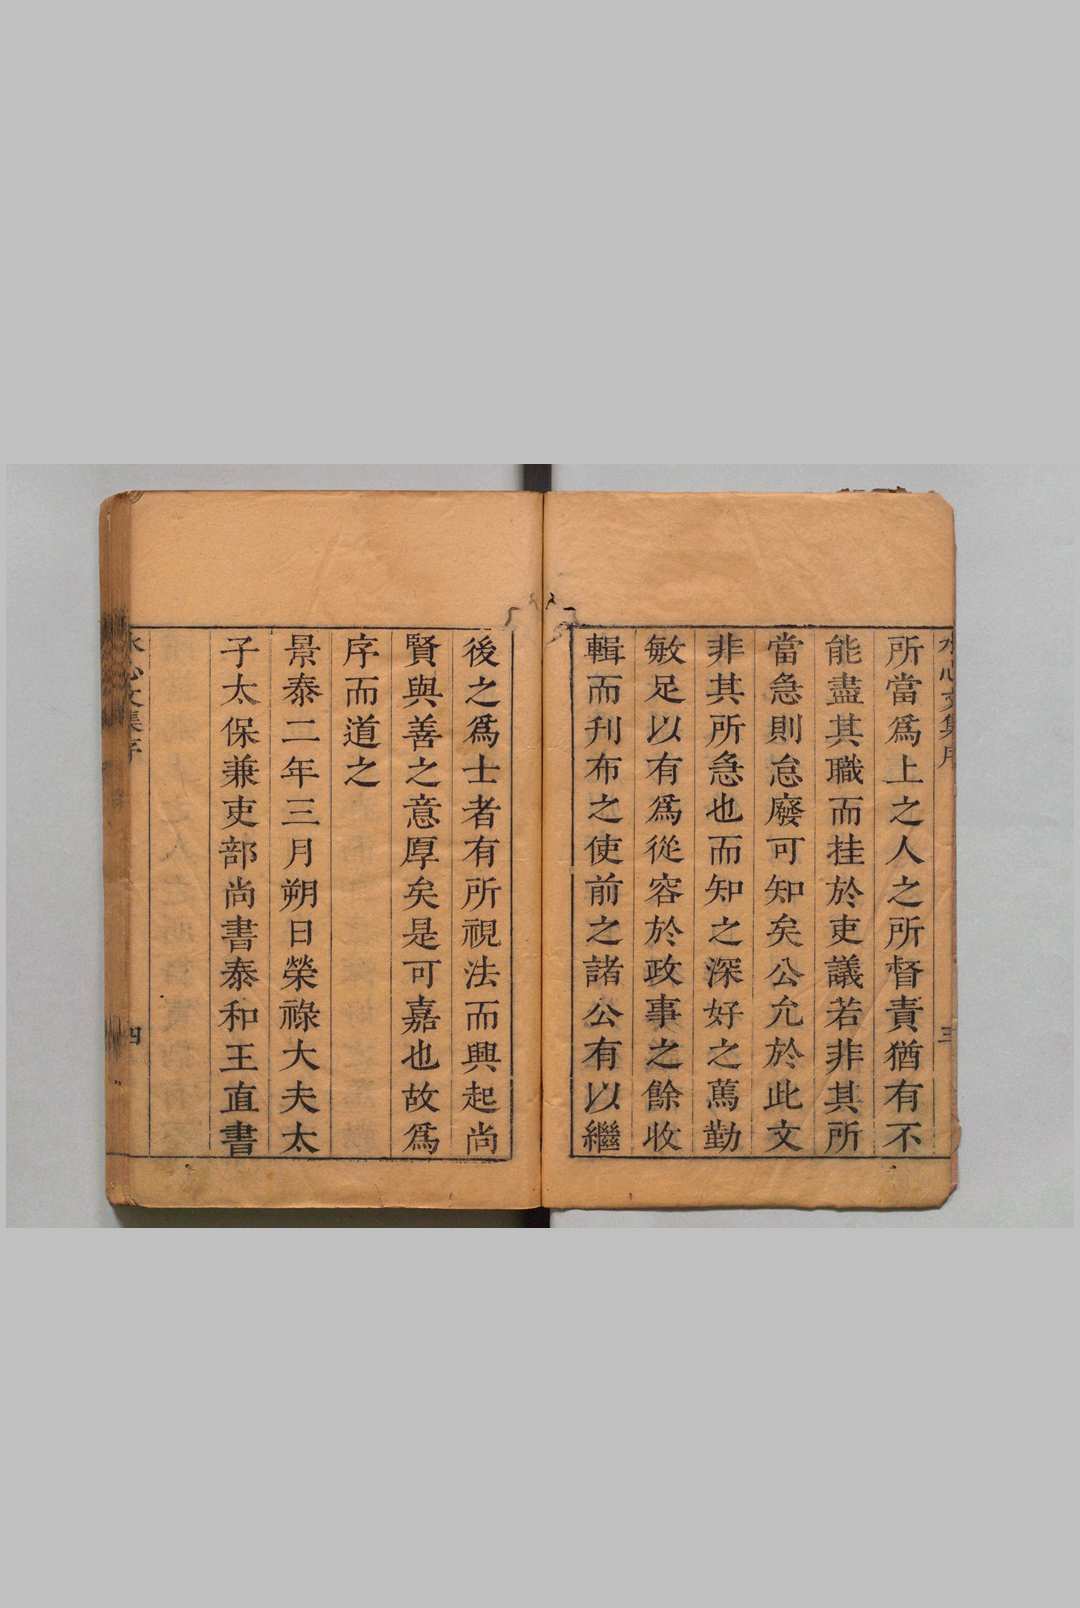 水心文集序
三
所當爲上之人之所督責猶有不
能盡其職而挂於吏議若非其所
當急則怠廢可知矣公允於此文
非其所急也而知之深好之篤勤
敏足以有爲從容於政事之餘收
輯而刊布之使前之諸公有以繼
後之爲士者有所視法而興起尚
賢與善之意厚矣是可嘉也故爲
序而道之
景泰二年三月朔日榮祿大夫太
子太保兼吏部尚書泰和王直書
水心文集序
四